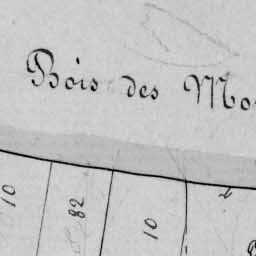 Bois des Mo
10
82
10